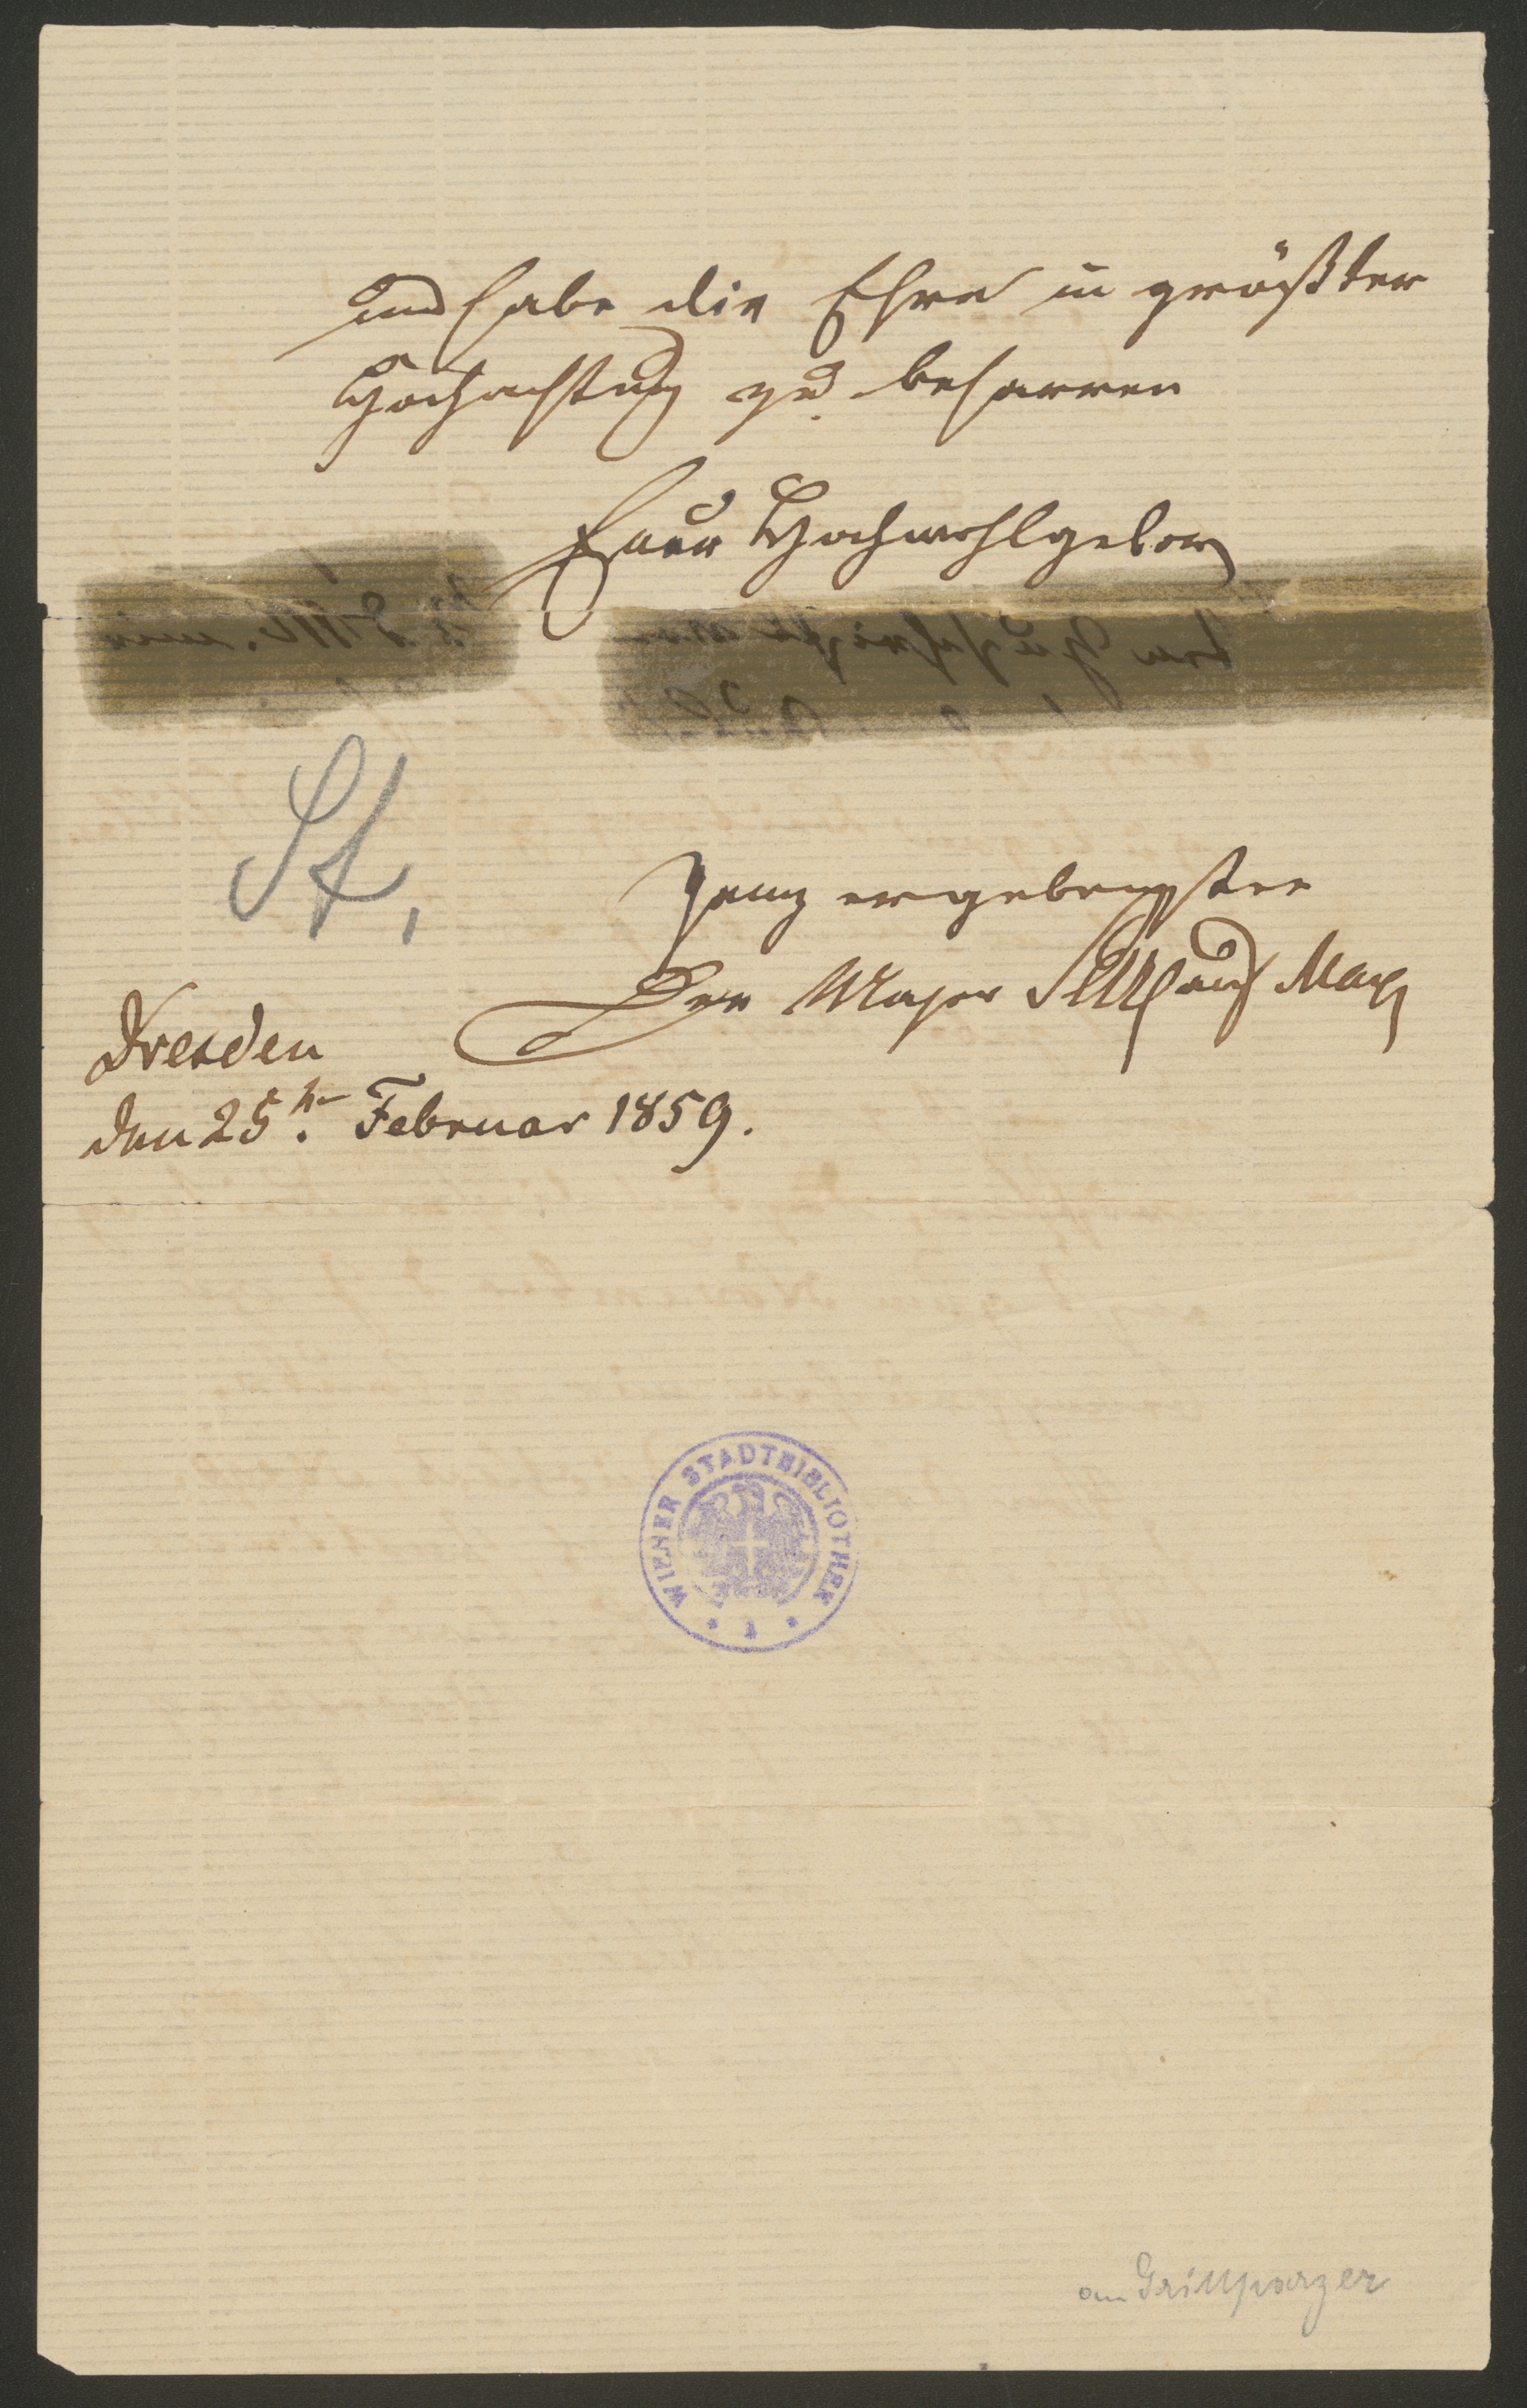 und habe die Ehre in größter
Hochachtung zu beharren
Euer Hochwohlgeborn
St.
ganz ergebenster
Der Major Serre auf Maxen
Dresden
den 25t. Februar 1859.
WIENER STADTBIBLIOTHEK
an Grillparzer